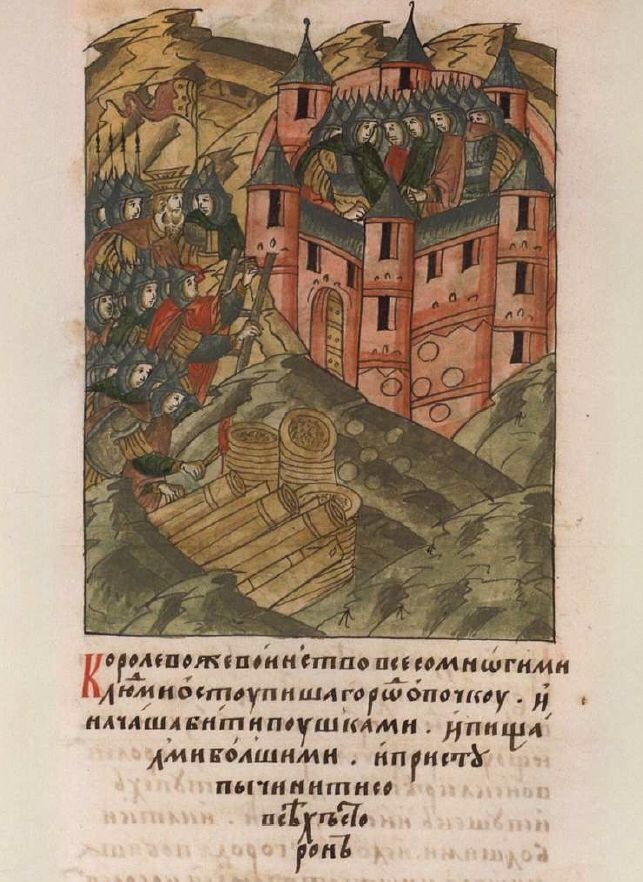 Королевожевоинствовсесомнѡгими
людмиостоупишагорѡⷣопочкоу. и
начашабитипоушками. ипища
лмиболшими. иристу
пычинитисо
всѣхъсто
ронъ